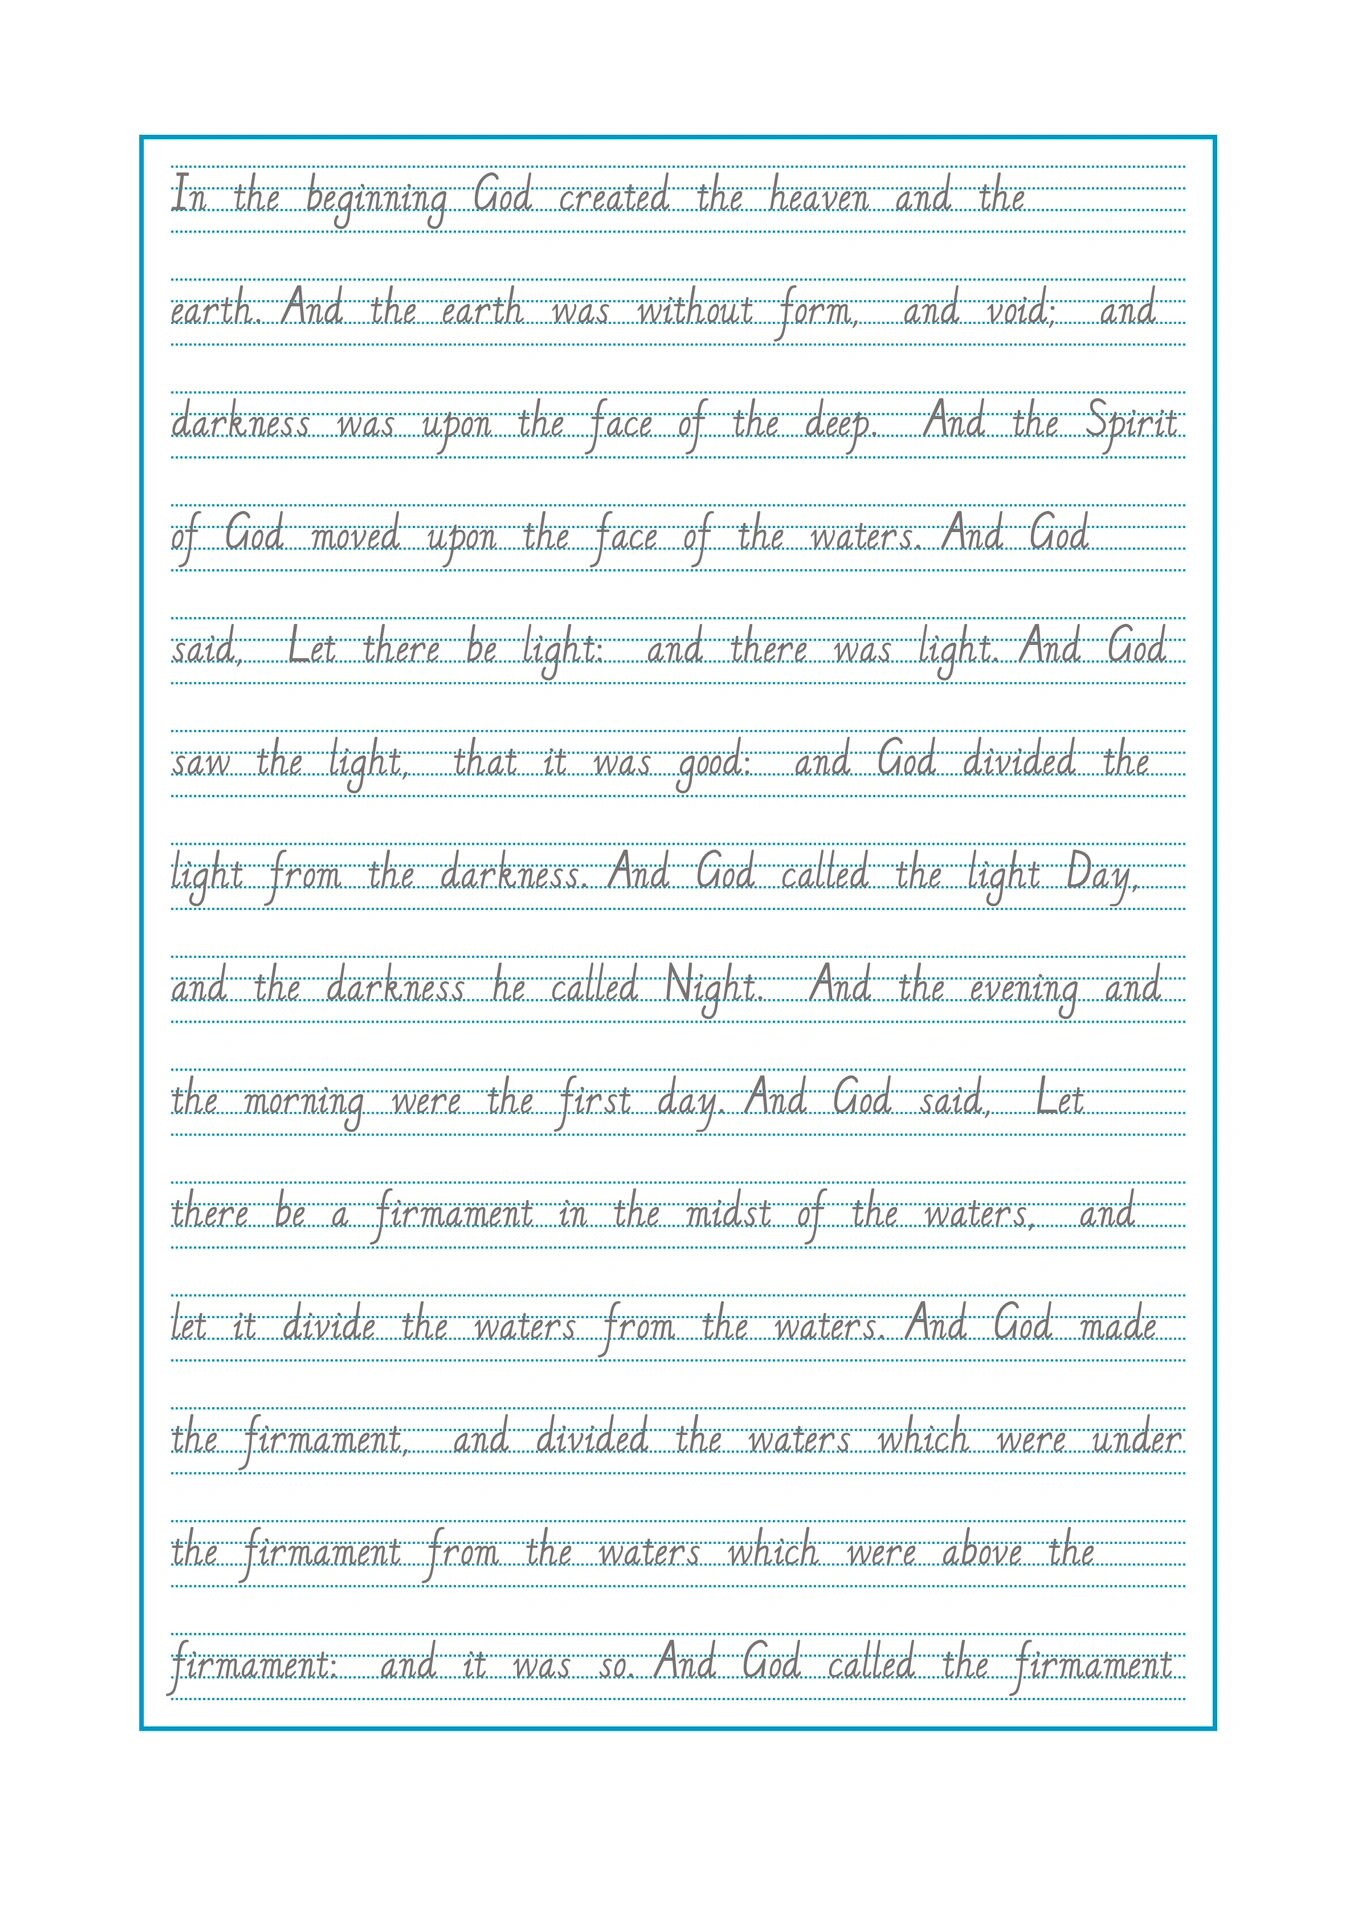 In the beginning God created the heaven and the
earth. And the earth was without form, and void; and
darkness was upon the face of the deep. And the Spirit
of God moved upon the face of the waters. And God
said, Let there be light: and there was light. And God
saw the light, that it was good: and God divided the
light from the darkness. And God called the light Day,
and the darkness he called Night. And the evening and
the morning were the first day. And God said, Let
there be a firmament in the midst of the waters, and
let it divide the waters from the waters. And God made
the firmament, and divided the waters which were under
the firmament from the waters which were above the
firmament: and it was so. And God called the firmament